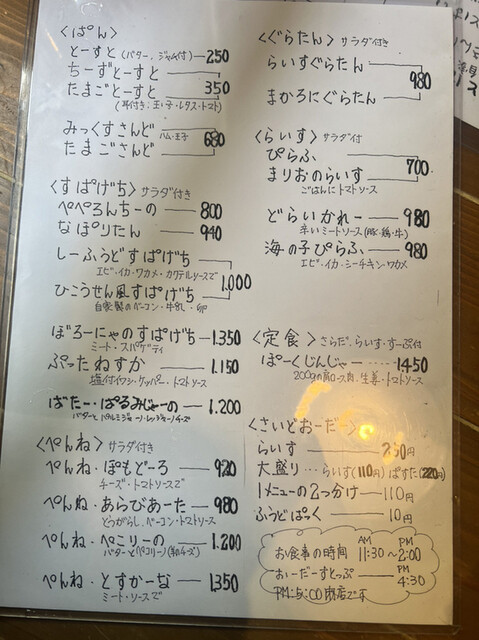 <ぱん>
とーすと (バター、ジャム付) 250
ちーずとーすと
たまごとーすと 350
(耳付き:玉子・レタス・トマト)
みっくすさんど ハム・玉子
たまごさんど 680
<すぱげち> サラダ付き
ぺぺろんちーの 800
なぽりたん 940
しーふうどすぱげち
エビ・イカ・ワカメ・カクテルソースで
1.000
ひこうせん風すぱげち
自家製のベーコン・牛乳・卵
ぼろーにゃのすぱげち 1.350
ミート・スパゲティ
ぷったねすか 1.150
塩付イワシ・ケッパー・トマトソース
ばたー・ぱるみじゃーの 1.200
バターとパルミジャーノ・レッジャーノチーズ
<ぺんね> サラダ付き
ぺんね・ぽもどーろ 920
チーズ・トマトソースで
ぺんね・あらびあーた 980
とうがらし、ベーコン・トマトソース
ぺんね・ぺこりーの 1.200
バターとペコリーノ(羊チーズ)
ぺんね・とすかーな 1350
ミート・ソースで
<ぐらたん> サラダ付き
らいすぐらたん
980
まかろにぐらたん
<らいす> サラダ付
ぴらふ
700
まりおのらいす
ごはんにトマトソース
どらいかれー 980
辛いミートソース(豚・鶏・牛)
海の子ぴらふ 980
エビ・イカ・シーチキン・ワカメ
<定食> さらだ・らいす・すーぷ付
ぽーくじんじゃー 1450
200gの肩ロース肉・生姜・トマトソース
<さいどおーだー>
らいす 250円
大盛り・・・らいす(110円) ぱすた(220円)
1メニューの2つ分け 110円
ふうどぱっく 10円
お食事の時間 AM 11:30〜PM 2:00
おーだーすとっぷ PM 4:30
PM:5:00閉店です